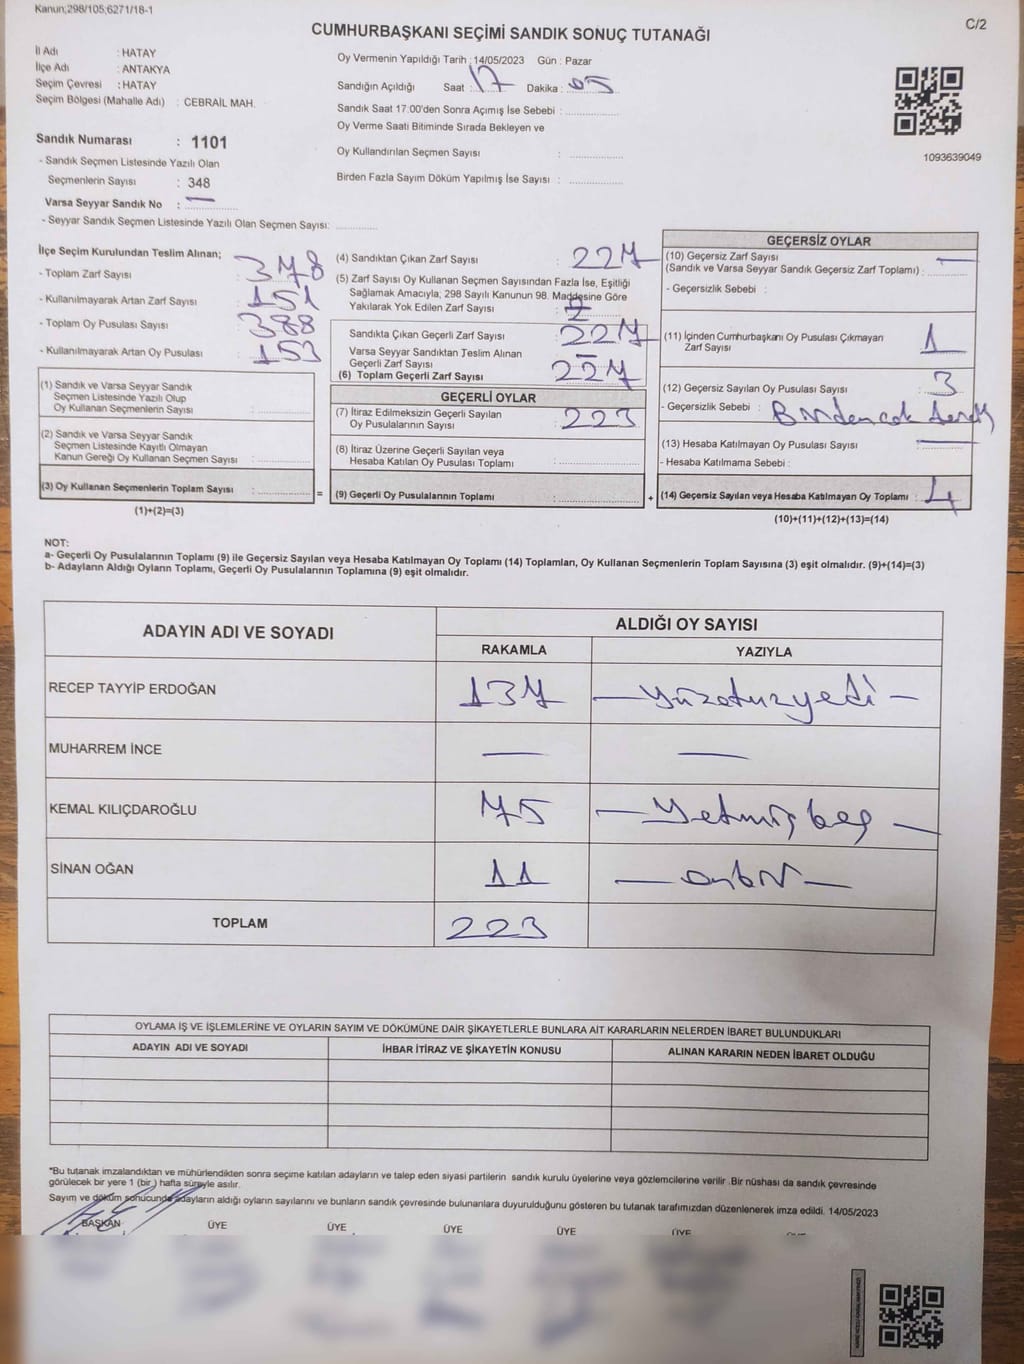 Kanun;298/105;6271/18-1
C/2
CUMHURBAŞKANI SEÇİMİ SANDIK SONUÇ TUTANAĞI
İl Adı : HATAY
İlçe Adı : ANTAKYA
Seçim Çevresi : HATAY
Seçim Bölgesi (Mahalle Adı) : CEBRAİL MAH.
Sandık Numarası : 1101
- Sandık Seçmen Listesinde Yazılı Olan
Seçmenlerin Sayısı : 348
Varsa Seyyar Sandık No : —
- Seyyar Sandık Seçmen Listesinde Yazılı Olan Seçmen Sayısı:
Oy Vermenin Yapıldığı Tarih : 14/05/2023 Gün : Pazar
Sandığın Açıldığı Saat : 17 Dakika : 05
Sandık Saat 17:00'den Sonra Açımış İse Sebebi :
Oy Verme Saati Bitiminde Sırada Bekleyen ve
Oy Kullandırılan Seçmen Sayısı :
Birden Fazla Sayım Döküm Yapılmış İse Sayısı :
1093639049
İlçe Seçim Kurulundan Teslim Alınan;
- Toplam Zarf Sayısı : 378
- Kullanılmayarak Artan Zarf Sayısı : 151
- Toplam Oy Pusulası Sayısı : 388
- Kullanılmayarak Artan Oy Pusulası : 153
(1) Sandık ve Varsa Seyyar Sandık
Seçmen Listesinde Yazılı Olup
Oy Kullanan Seçmenlerin Sayısı :
(2) Sandık ve Varsa Seyyar Sandık
Seçmen Listesinde Kayıtlı Olmayan
Kanun Gereği Oy Kullanan Seçmen Sayısı :
(3) Oy Kullanan Seçmenlerin Toplam Sayısı :
(1)+(2)=(3)
=
(4) Sandıktan Çıkan Zarf Sayısı : 227
(5) Zarf Sayısı Oy Kullanan Seçmen Sayısından Fazla İse, Eşitliği
Sağlamak Amacıyla, 298 Sayılı Kanunun 98. Maddesine Göre
Yakılarak Yok Edilen Zarf Sayısı :
Sandıkta Çıkan Geçerli Zarf Sayısı : 227
Varsa Seyyar Sandıktan Teslim Alınan
Geçerli Zarf Sayısı : —
(6) Toplam Geçerli Zarf Sayısı : 227
GEÇERLİ OYLAR
(7) İtiraz Edilmeksizin Geçerli Sayılan
Oy Pusulalarının Sayısı : 223
(8) İtiraz Üzerine Geçerli Sayılan veya
Hesaba Katılan Oy Pusulası Toplamı :
(9) Geçerli Oy Pusulalarının Toplamı :
+
GEÇERSİZ OYLAR
(10) Geçersiz Zarf Sayısı —
(Sandık ve Varsa Seyyar Sandık Geçersiz Zarf Toplamı) :
- Geçersizlik Sebebi :
(11) İçinden Cumhurbaşkanı Oy Pusulası Çıkmayan
Zarf Sayısı : 1
(12) Geçersiz Sayılan Oy Pusulası Sayısı : 3
- Geçersizlik Sebebi : Birden çok
(13) Hesaba Katılmayan Oy Pusulası Sayısı : —
- Hesaba Katılmama Sebebi :
(14) Geçersiz Sayılan veya Hesaba Katılmayan Oy Toplamı : 4
(10)+(11)+(12)+(13)=(14)
NOT:
a- Geçerli Oy Pusulalarının Toplamı (9) ile Geçersiz Sayılan veya Hesaba Katılmayan Oy Toplamı (14) Toplamları, Oy Kullanan Seçmenlerin Toplam Sayısına (3) eşit olmalıdır. (9)+(14)=(3)
b- Adayların Aldığı Oyların Toplamı, Geçerli Oy Pusulalarının Toplamına (9) eşit olmalıdır.
ADAYIN ADI VE SOYADI
ALDIĞI OY SAYISI
RAKAMLA YAZIYLA
RECEP TAYYİP ERDOĞAN 137 — Yüzotuzyedi —
MUHARREM İNCE — —
KEMAL KILIÇDAROĞLU 75 — Yetmişbeş —
SİNAN OĞAN 11 — onbir —
TOPLAM 223
OYLAMA İŞ VE İŞLEMLERİNE VE OYLARIN SAYIM VE DÖKÜMÜNE DAİR ŞİKAYETLERLE BUNLARA AİT KARARLARIN NELERDEN İBARET BULUNDUKLARI
ADAYIN ADI VE SOYADI İHBAR İTİRAZ VE ŞİKAYETİN KONUSU ALINAN KARARIN NEDEN İBARET OLDUĞU
*Bu tutanak imzalandıktan ve mühürlendikten sonra seçime katılan adayların ve talep eden siyasi partilerin sandık kurulu üyelerine veya gözlemcilerine verilir .Bir nüshası da sandık çevresinde
görülecek bir yere 1 (bir ) hafta süreyle asılır.
Sayım ve döküm sonucunda adayların aldığı oyların sayılarını ve bunların sandık çevresinde bulunanlara duyurulduğunu gösteren bu tutanak tarafımızdan düzenlenerek imza edildi. 14/05/2023
BAŞKAN ÜYE ÜYE ÜYE ÜYE ÜYE